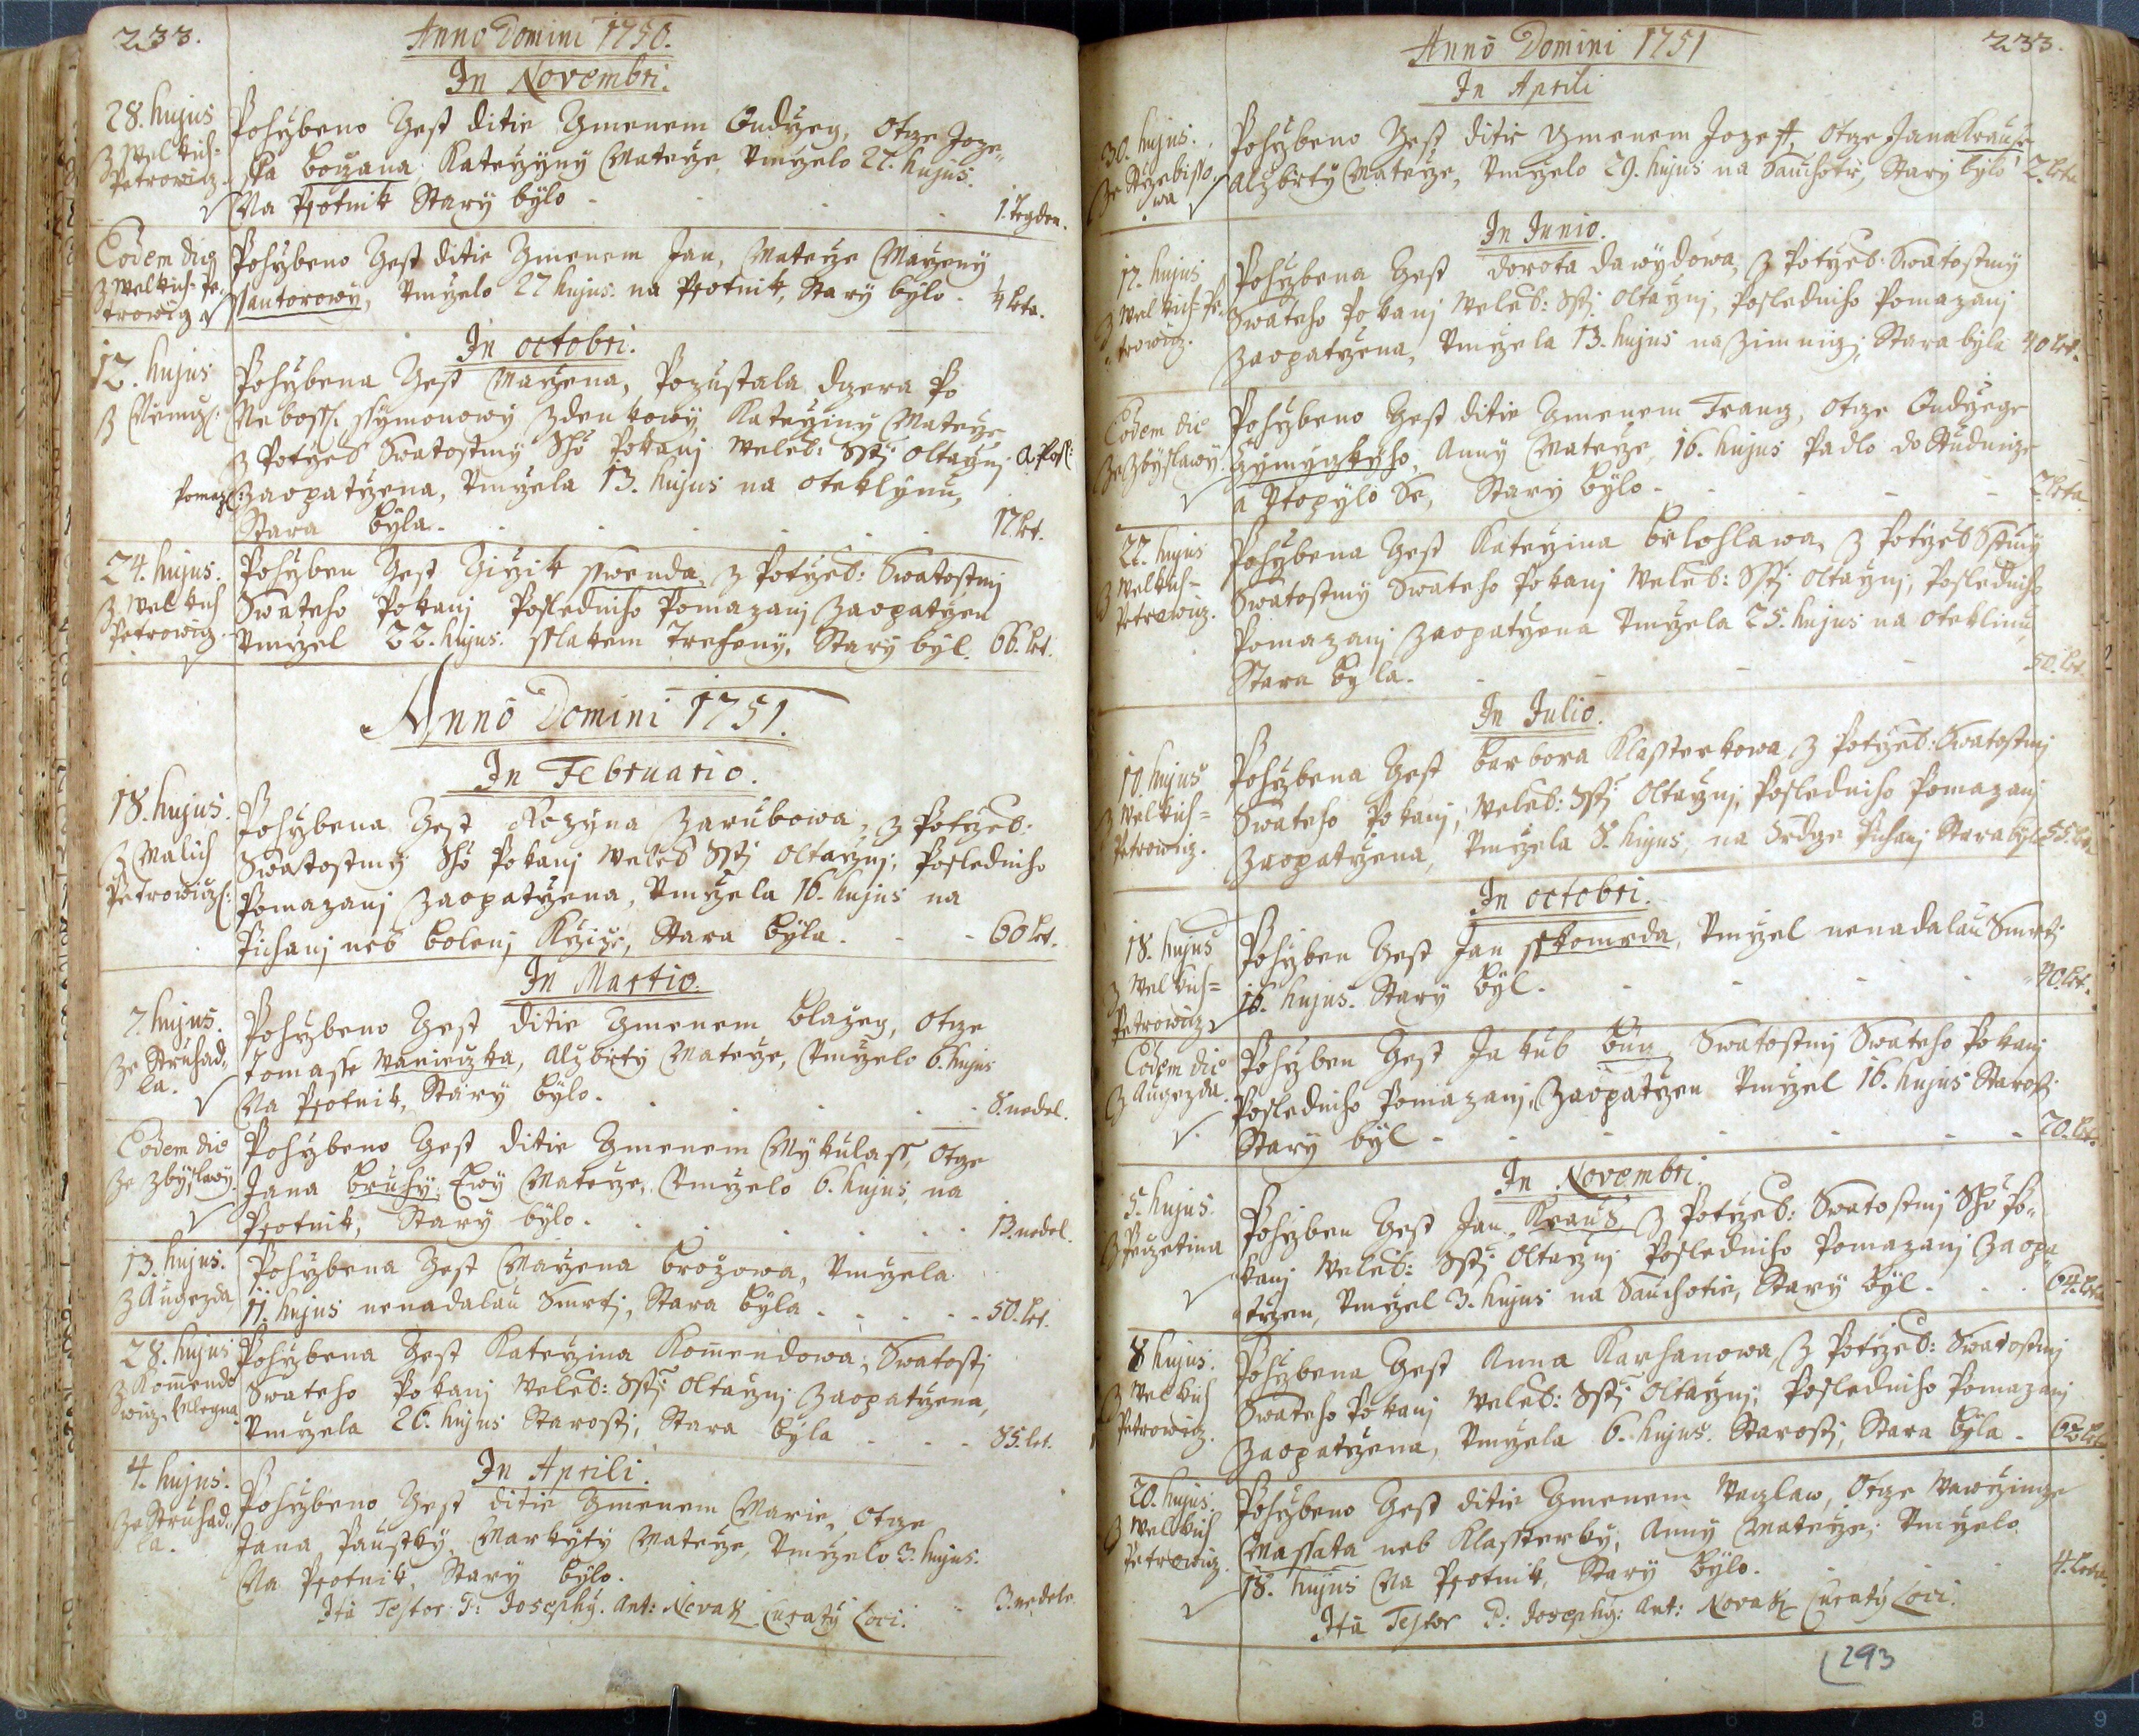 233.
Anno Domini 1750.
In Novembri.
28. hujus
z Welkich
Petrowicz
Pohrzbeno Gest ditie Gmenem Ondrzeg, Otcze Joze„
ffa bouzana Katerzyny Materze, Umrzelo 27. hujus.
Na Psotnik Stary bylo 1. Tegden.
Eodem die
z Welkich Pe„
trowicz
Pohrzbeno Gest ditie Gmenem Jan, Materze Marzeny
Kantorowy, Umrzelo 27 hujus. na Psotnik, Stary bylo. ¼ leta.
In octobri.
12. hujus
Pohrzbena Gest Marzena, Pozustala dczera Po
Neboss. Ssymonowy Zdenkowy Katerziny Materze
z Potrzeb Swatostmy Sho Pokanj Weleb: Sstj Oltarznj a Posl:
Pomaz: zaopatrzena, Umrzela 13. hujus na oteklynu,
Stara byla. 17. let.
24. hujus.
z Welkich
Petrowicz.
Pohrzben Gest Girzik Swenda z Potrzeb: Swatostmj
Swateho Pokanj Posledniho Pomazanj zaopatrzen
Umrzel 22. hujus. sslakem Trefeny, Stary byl. 66. let.
Anno Domini 1751.
In Februario.
18. hujus.
z Malich
Petrowicz:
Pohrzbena Gest Rozyna Zarubowa, z Potrzeb:
Swatostmy Sho Pokanj Weleb Sstj Oltarznj, Posledniho
Pomazanj zaopatrzena, Umrzela 16. hujus na
Pichanj neb bolenj Krzize, Stara byla. 60 let.
In Martio.
7. hujus.
ze Struhad„
la.
Pohrzbeno Gest ditie Gmenem blazeg, Otcze
Tomasse Wanieczka, Alzbirty Materze, Umrzelo 6. hujus
Na Psotnik, Stary bylo. 8. nedel.
Eodem die
ze Zbyslawy.
Pohrzbeno Gest ditie Gmenem Mykulass, Otcze
Jana bruhy, Ewy Materze, Umrzelo 6. hujus, na
Psotnik, Stary bylo. 13. nedel.
13. hujus.
z Augezda
Pohrzbena Gest Marzena brozowa, Umrzela
11. hujus nenadalau Smrtj, Stara byla 50. let.
28. hujus
z Komendo
Pohrzbena Gest Katerzina Komendowa, Swatostj
Swateho Pokanj Weleb: Sstj Oltarznj zaopatrzena,
Umrzela 26. hujus Starostj, Stara byla 85. let.
In Aprili.
4. hujus.
ze Struhad„
la.
Pohrzbeno Gest ditie Gmenem Marie, Otcze
Jana Paustky, Markyty Materze, Umrzelo 3. hujus.
Na Psotnik, Stary bylo. 3. nedele.
Ita Testor P: Josephy. Ant: Novak Curaty Loci.
Anno Domini 1751
233.
In Aprili
30. hujus.
Pohrzbeno Gest ditie Gmenem Jozeff, Otcze Jana Krause
Alzbirty Materze, Umrzelo 29. hujus na Sauchotie, Stary bylo 2. leta
In Junio.
17. hujus
z Welkich Pe„
trowicz.
Pohrzbena Gest dorota dawydowa, z Potrzeb: Swatostmy
Swateho Pokanj Weleb: Sstj Oltarznj, Posledniho Pomazanj
zaopatrzena, Umrzela 13. hujus na Zimnicj, Stara byla 40 let.
Eodem die
ze Zbyslawy.
Pohrzbeno Gest ditie Gmenem Franz, Otcze Ondrzege
Anny Materze, 16. hujus Padlo do Studnicze
a Utopylo Se, Stary bylo. 2. leta
22. hujus
z Welkich
Petrowicz.
Pohrzbena Gest Katerzina brlohlawa, z Potrzeb Sstmy
Swatostmy Swateho Pokanj Weleb: Sstj Oltarznj, Posledniho
Pomazanj zaopatrzena Umrzela 25. hujus na oteklinu
Stara byla. 50. let
In Julio.
10. hujus
z Welkich
Petrowicz.
Pohrzbena Gest barbora Klassterkowa z Potrzeb: Swatostmj
Swateho Pokanj, Weleb: Sstj Oltarznj, Posledniho Pomazanj
zaopatrzena, Umrzela 8. hujus, na Srdcze Pichanj Stara byla 55. let
In octobri.
18. hujus
z Welkich
Petrowicz
Pohrzben Gest Jan Skomrda, Umrzel nenadalau Smrtj
16. hujus. Stary byl. 40. let.
Eodem die
z Augezda.
Pohrzben Gest Jakub Swatostmj Swateho Pokanj
Posledniho Pomazanj, zaopatrzen Umrzel 16. hujus Starostj
Stary byl 70. let.
In Novembri.
5. hujus.
z Puczetina
Pohrzben Gest Jan Kraus z Potrzeb: Swatostmj Sho Po„
kanj Weleb: Sstj Oltarznj Posledniho Pomazanj zaopa„
trzen, Umrzel 3. hujus na Sauchotie, Stary byl. 64. leta
8 hujus.
z Welkich
Petrowicz.
Pohrzbena Gest Anna Karhanowa, z Potrzeb: Swatostmj
Swateho Pokanj Weleb: Sstj Oltarznj, Posledniho Pomazanj
zaopatrzena, Umrzela 6. hujus. Starostj, Stara byla.
20. hujus.
z Welkich
Petrowicz.
Pohrzbeno Gest ditie Gmenem Waczlaw, Otcze Wawrzincze
Massata neb Klassterky, Anny Materze, Umrzelo
18. hujus Na Psotnik, Stary bylo. 4. leta.
Ita Testor P: Josephy: Ant: Novak Curaty Loci.
293